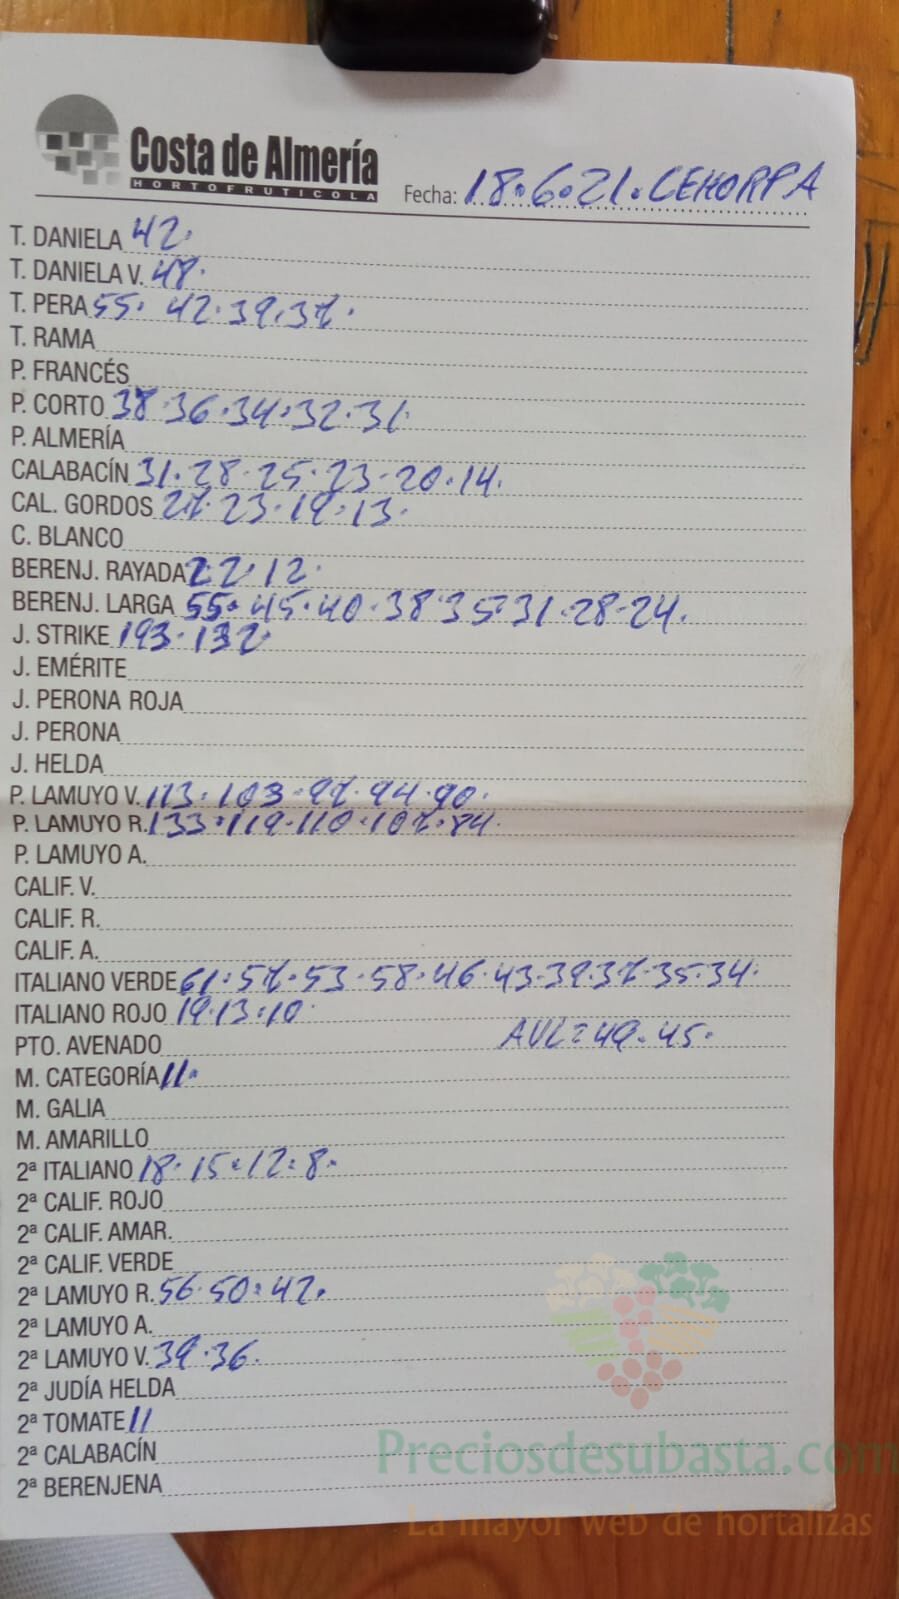 Costa de Almería
HORTOFRUTICOLA
Fecha: 18.6.21. CEHORPA
T. DANIELA 42.
T. DANIELA V. 48.
T. PERA 55. 42.39.37.
T. RAMA
P. FRANCÉS
P. CORTO 38.36.34.32.31.
P. ALMERÍA
CALABACÍN 31.28.25.23.20.14.
CAL. GORDOS 27.23.19.13.
C. BLANCO
BERENJ. RAYADA 22.12.
BERENJ. LARGA 55.45.40.38.35.31.28.24.
J. STRIKE 193.132.
J. EMÉRITE
J. PERONA ROJA
J. PERONA
J. HELDA
P. LAMUYO V. 113.103.97.94.90.
P. LAMUYO R. 133.119.110.107.84.
P. LAMUYO A.
CALIF. V.
CALIF. R.
CALIF. A.
ITALIANO VERDE 61.57.53.58.46.43.39.37.35.34.
ITALIANO ROJO 19.13.10.
PTO. AVENADO AVL=49.45.
M. CATEGORÍA 11.
M. GALIA
M. AMARILLO
2ª ITALIANO 18.15.12.8.
2ª CALIF. ROJO
2ª CALIF. AMAR.
2ª CALIF. VERDE
2ª LAMUYO R. 56.50.42.
2ª LAMUYO A.
2ª LAMUYO V. 39.36.
2ª JUDÍA HELDA
2ª TOMATE 11
2ª CALABACÍN
2ª BERENJENA
Preciosdesubasta.com
La mayor web de hortalizas